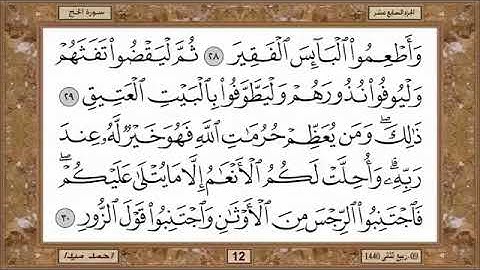 الجزء السابع عشر
سورة الحج
وَأَطْعِمُواْ الْبَآئِسَ الْفَقِيرَ ۝٢٨ ثُمَّ لْيَقْضُواْ تَفَثَهُمْ
وَلْيُوفُواْ نُذُورَهُمْ وَلْيَطَّوَّفُواْ بِالْبَيْتِ الْعَتِيقِ ۝٢٩
ذَٰلِكَۖ وَمَن يُعَظِّمْ حُرُمَٰتِ اللَّهِ فَهُوَ خَيْرٌ لَّهُۥ عِندَ
رَبِّهِۦۗ وَأُحِلَّتْ لَكُمُ الْأَنْعَٰمُ إِلَّا مَا يُتْلَىٰ عَلَيْكُمْۖ
فَاجْتَنِبُواْ الرِّجْسَ مِنَ الْأَوْثَٰنِ وَاجْتَنِبُواْ قَوْلَ الزُّورِ ۝٣٠
09. ربيع الثاني 1440
12